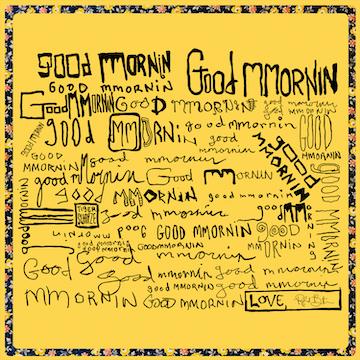 good mmornin Good MMORNIN
GOOD MMORNIN
Good MMORNIN GOOD MMORNIN good mmornin
good MMORNIN good mmornin GOOD MMORNIN
GOOD MMORNIN good mmornin good mmornin
good mmornin Good mmornin good MMORNIN
good MMORNIN good mmornin
good mmornin good MMORNIN
MMORNIN good GOOD MMORNIN GOOD MMORNIN
good mmornin good mmornin GOOD MMORNIN
Good good mmornin GOOD MMORNIN
good mmornin good mmornin
good mmornin GOOD MMORNIN
MMORNIN GOOD MMORNIN LOVE,